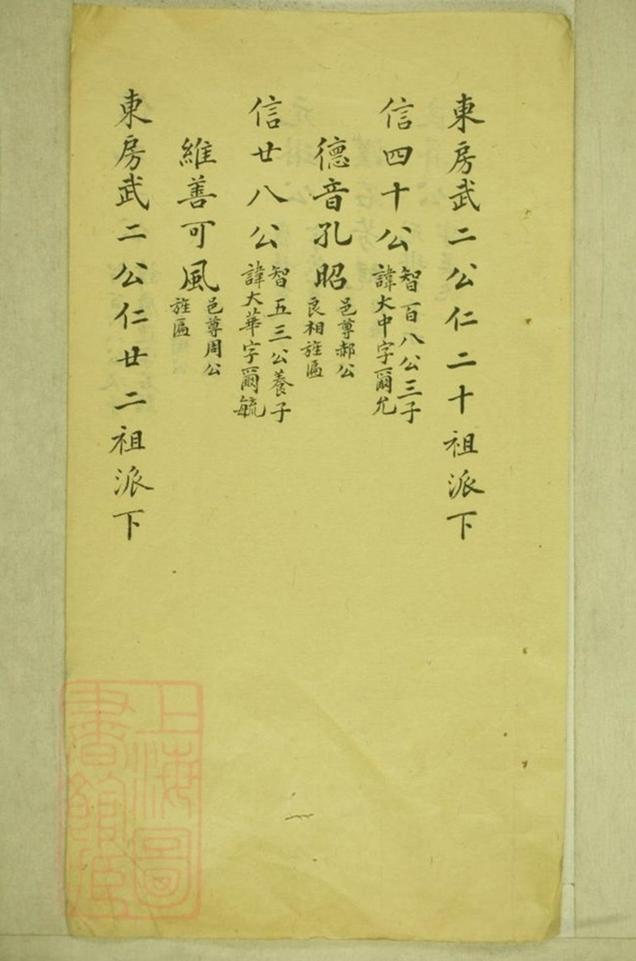 東房武二公仁二十祖派下
信四十公智百八公三子
諱大中字爾允
德音孔昭邑尊郝公
良相旌匾
信廿八公智五三公養子
諱大華字爾毓
維善可風邑尊周公
旌匾
東房武二公仁廿二祖派下
上海圖
書館藏